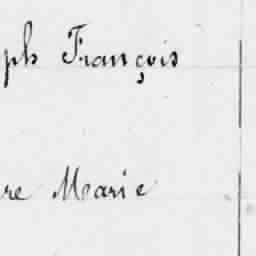 ph François
re Marie